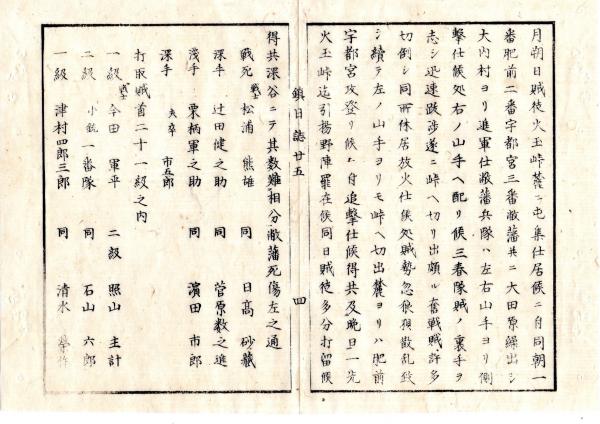 月朔日賊徒火玉峠麓ニ屯集仕居候ニ付同朝一
番肥前二番宇都宮三番敝藩共ニ大田原繰出シ
大内村ヨリ進軍仕敝藩兵隊ハ左右山手ヨリ側
撃仕候処右ノ山手ヘ配リ候三春隊賊ノ裏手ヲ
志シ迅速跋渉遂ニ峠ヘ切リ出頗ル奮戦賊許多
切倒シ同所休居放火仕候処賊勢忽狼狽散乱致
シ続テ左ノ山手ヨリモ峠ヘ切出麓ヨリハ肥前
宇都宮攻登リ候ニ付追撃仕候得共及晩旦一先
火玉峠迄引揚野陣罷在候同日賊徒多分打留候
鎮日誌 廿五 四
得共深谷ニテ其数難相分敝藩死傷左之通
戦死 戦士 松浦熊雄 同 日高砂藏
深手 辻田健之助 同 菅原数之進
浅手 栗柄軍之助 同 濱田市郎
深手 夫卒 市五郎
打取賊首二十一級之内
一級 戦士 今田軍平 二級 照山主計
二級 小銃一番隊 同 石山六郎
一級 津村四郎三郎 同 清水